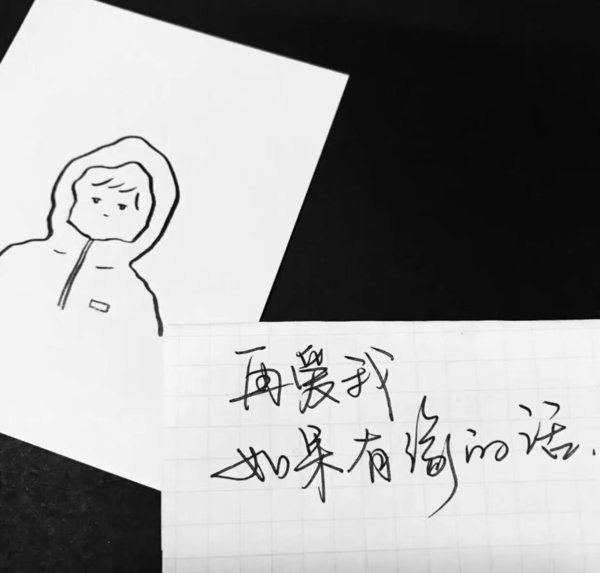 再爱我
如果有缘的话.